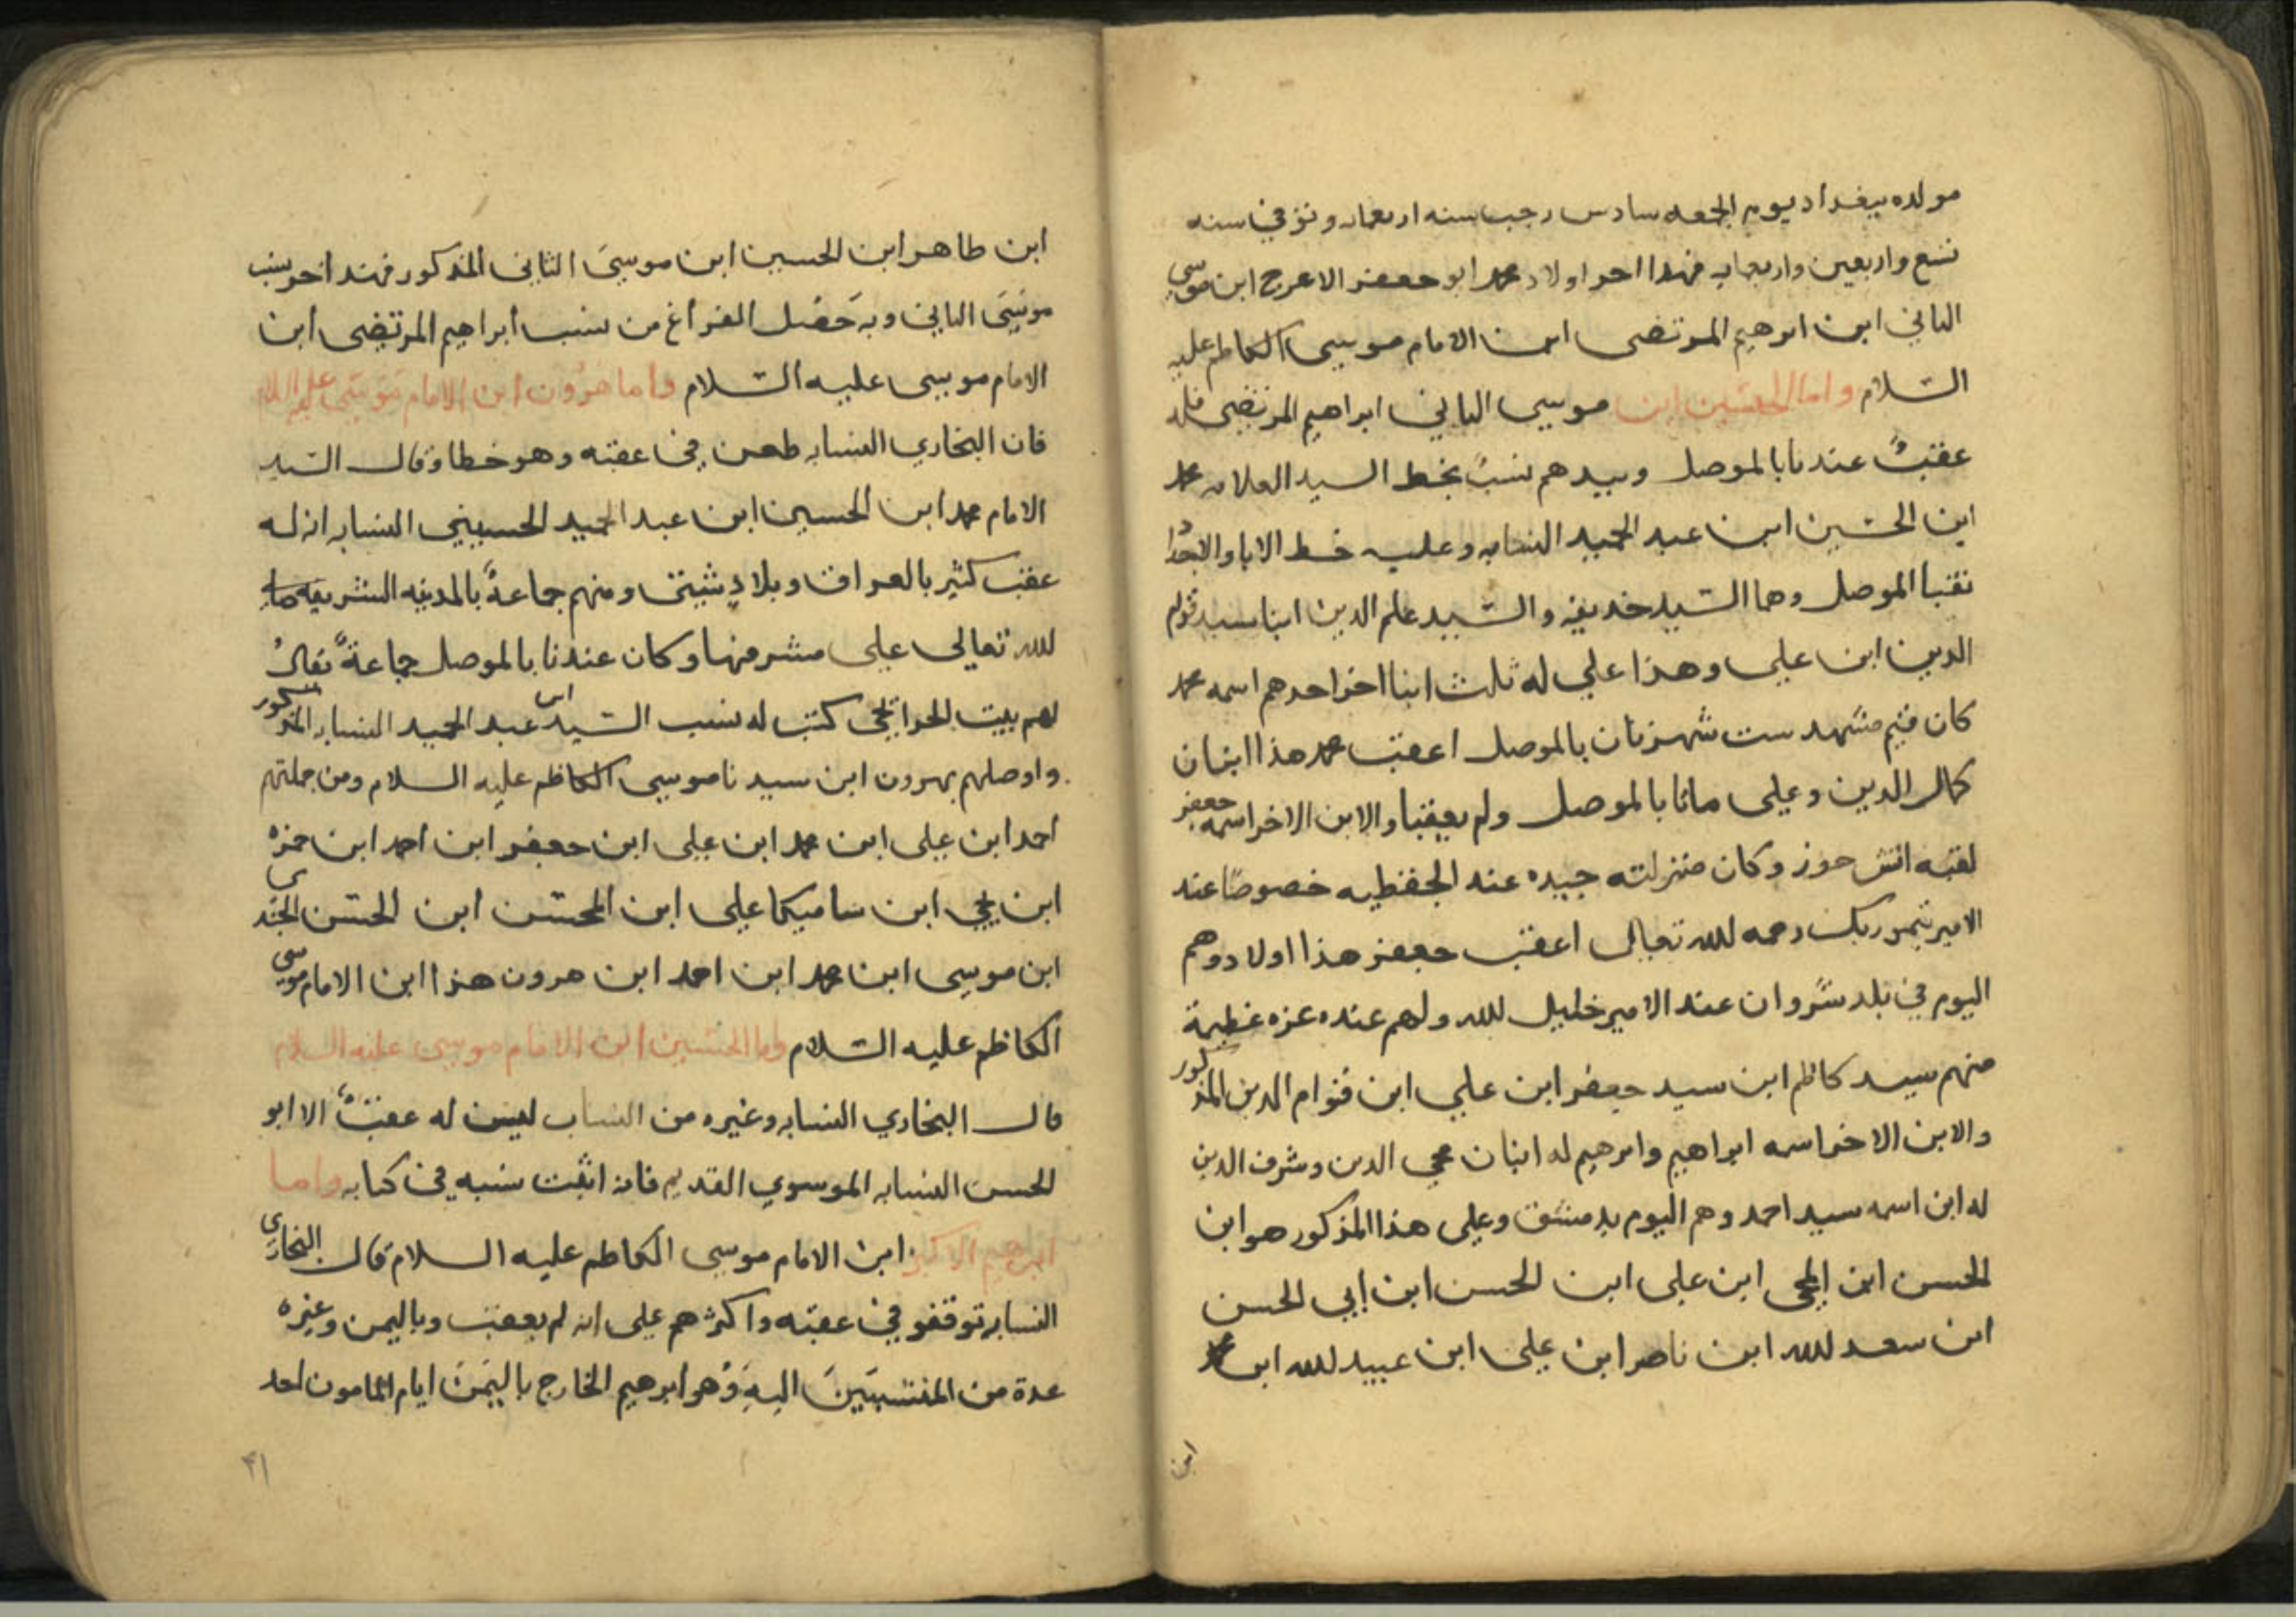 مولده ببغداد يوم الجمعه سادس رجب سنه اربعمايه وتوفي سنه
تسع واربعين واربعمايه فهذا اخر اولاد محمد ابو جعفر الاعرج ابن موسى
الثاني ابن ابرهيم المرتضى ابن الامام موسى الكاظم عليه
السلام واما الحسين ابن موسى الثاني ابراهيم المرتضى فله
عقبٌ عندنا بالموصل وبيدهم نسبٌ بخط السيد العلامه محمد
ابن الحسين ابن عبد الحميد النسابه وعليه خط الابا والاجداد
نقبا الموصل وهما السيد خديفه والسيد علم الدين ابنا سيد قوام
الدين ابن علي وهذا علي له ثلث ابنا اخر احدهم اسمه محمد
كان قيم مشهد ست شهزنان بالموصل اعقب محمد هذا ابنان
كمال الدين وعلى ماتا بالموصل ولم يعقبا والابن الاخر اسمه جعفر
لقبه انش حوز وكان منزلته جيده عند الجفطيه خصوصًا عند
الامير تيمور بك رحمه لله تعالى اعقب جعفر هذا اولاد وهم
اليوم في بلد شروان عند الامير خليل لله ولهم عنده عزه عظيمة
منهم سيد كاظم ابن سيد جعفر ابن علي ابن قوام الدين المذكور
والابن الاخر اسمه ابراهيم وابرهيم له ابنان محي الدين وشرف الدين
له ابن اسمه سيد احمد وهم اليوم بدمشق وعلى هذا المذكور هو ابن
الحسن ابن ابن علي ابن الحسن ابن ابي الحسن
ابن سعد لله ابن ناصر ابن علي ابن عبيد لله ابن محمد
ابن
ابن طاهر ابن الحسين ابن موسىَ الثاني المذكور فهذ اخر نسب
موسىَ الثاني وبه حَصَل الفراغ من نسب ابراهيم المرتضى ابن
الامام موسى عليه السلام واما هرون ابن الامام موسى عليه السلام
فان البخاري النسابه طعن في عقبه وهو خطا وقال السيد
الامام محمد ابن الحسين ابن عبد الحميد الحسيني النسابه ان له
عقب كثير بالعراق وبلادٍ شيتى ومنهم جماعةً بالمدينه الشريفه
لله تعالى على مشرفها وكان عندنا بالموصل جماعةً يقال
لهم بيت الحرايجي كتب له نسب السيد ابن عبد الحميد النسابه المذكور
واوصلهم بهرون ابن سيدنا موسى الكاظم عليه السلام ومن جملتهم
احمد ابن علي ابن محمد ابن علي ابن جعفر ابن احمد ابن حمزه
ابن يحي ابن ساميكا علي ابن المحسن ابن الحسن الجندي
ابن موسى ابن محمد ابن احمد ابن هرون هذا ابن الامام موسى
الكاظم عليه السلام واما الحسين ابن الامام موسى عليه السلام
قال البخاري النسابه وغيره من النساب ليس له عقبٌ الا ابو
الحسن النسابه الموسوي القديم فانه اثبت نسبه في كتابه واما
ابرهيم الاكبر ابن الامام موسى الكاظم عليه السلام قال البخاري
النسابه توقفو في عقبه واكثرهم على انه لم يعقب وباليمن وغيره
عدة من المنتسبَينَ اليهِ وَهو ابرهيم الخارج باليَمَن ايام المامون احد
٤١